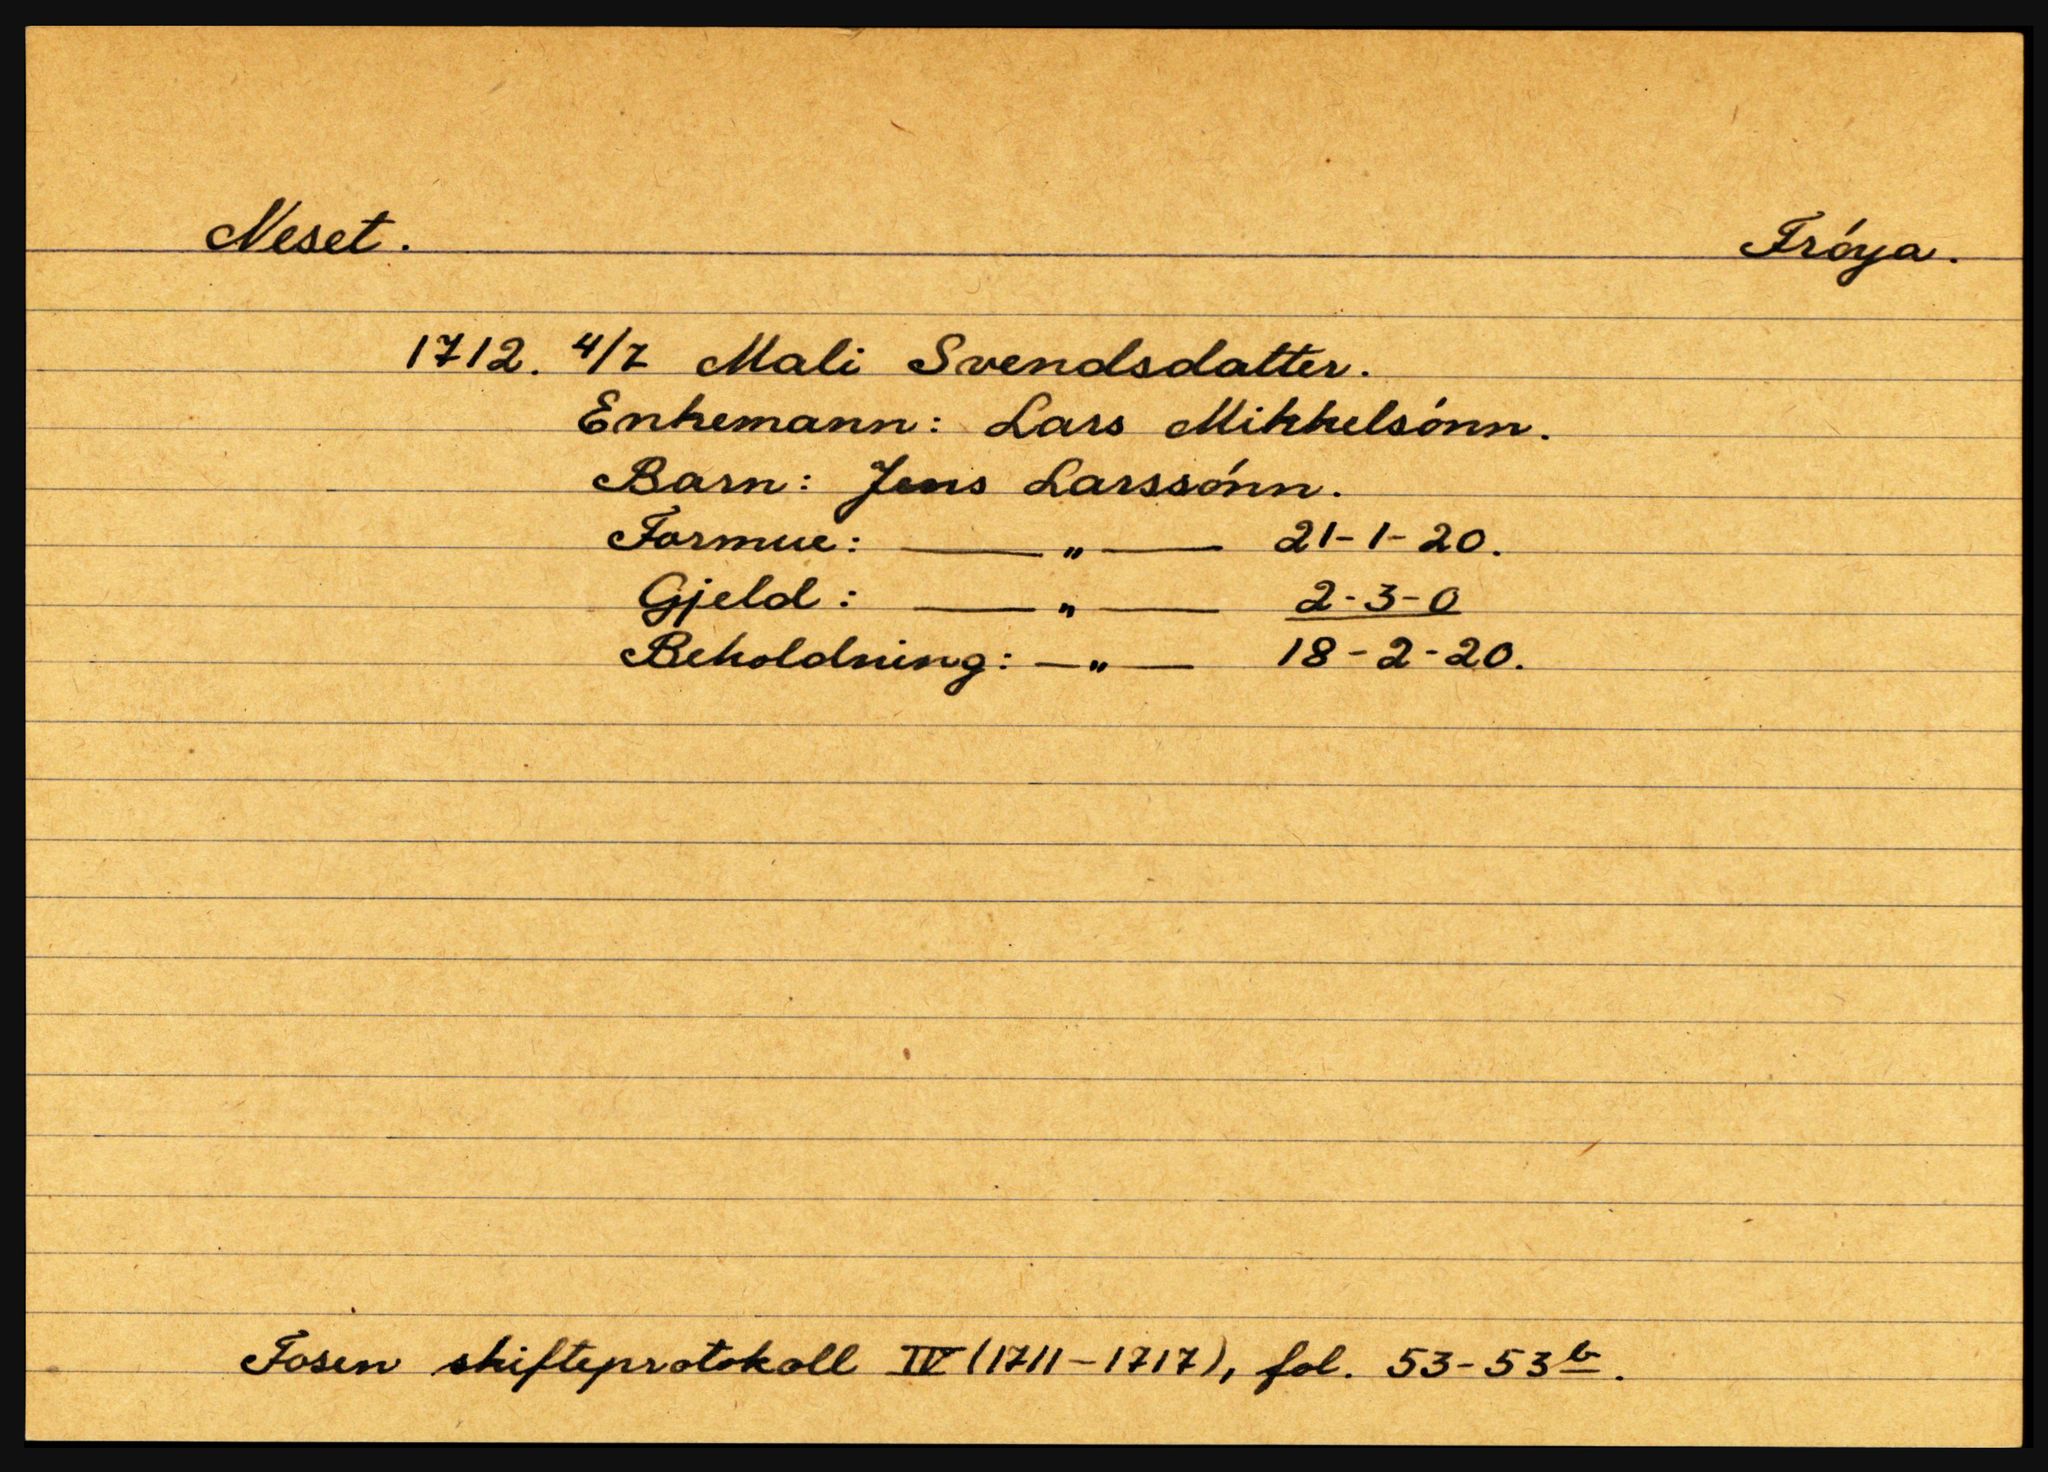 Neset. Fróya.
1712. 4/7 Mali Svendsdatter.
Enkemann: Lars Mikkelsónn.
Barn: Jens Larssónn.
Formue: — „ — 21-1-20.
Gjeld: — „ — 2-3-0
Beholdning: — „ — 18-2-20.
Fosen skifteprotokoll IV (1711-1717), fol. 53-53b.